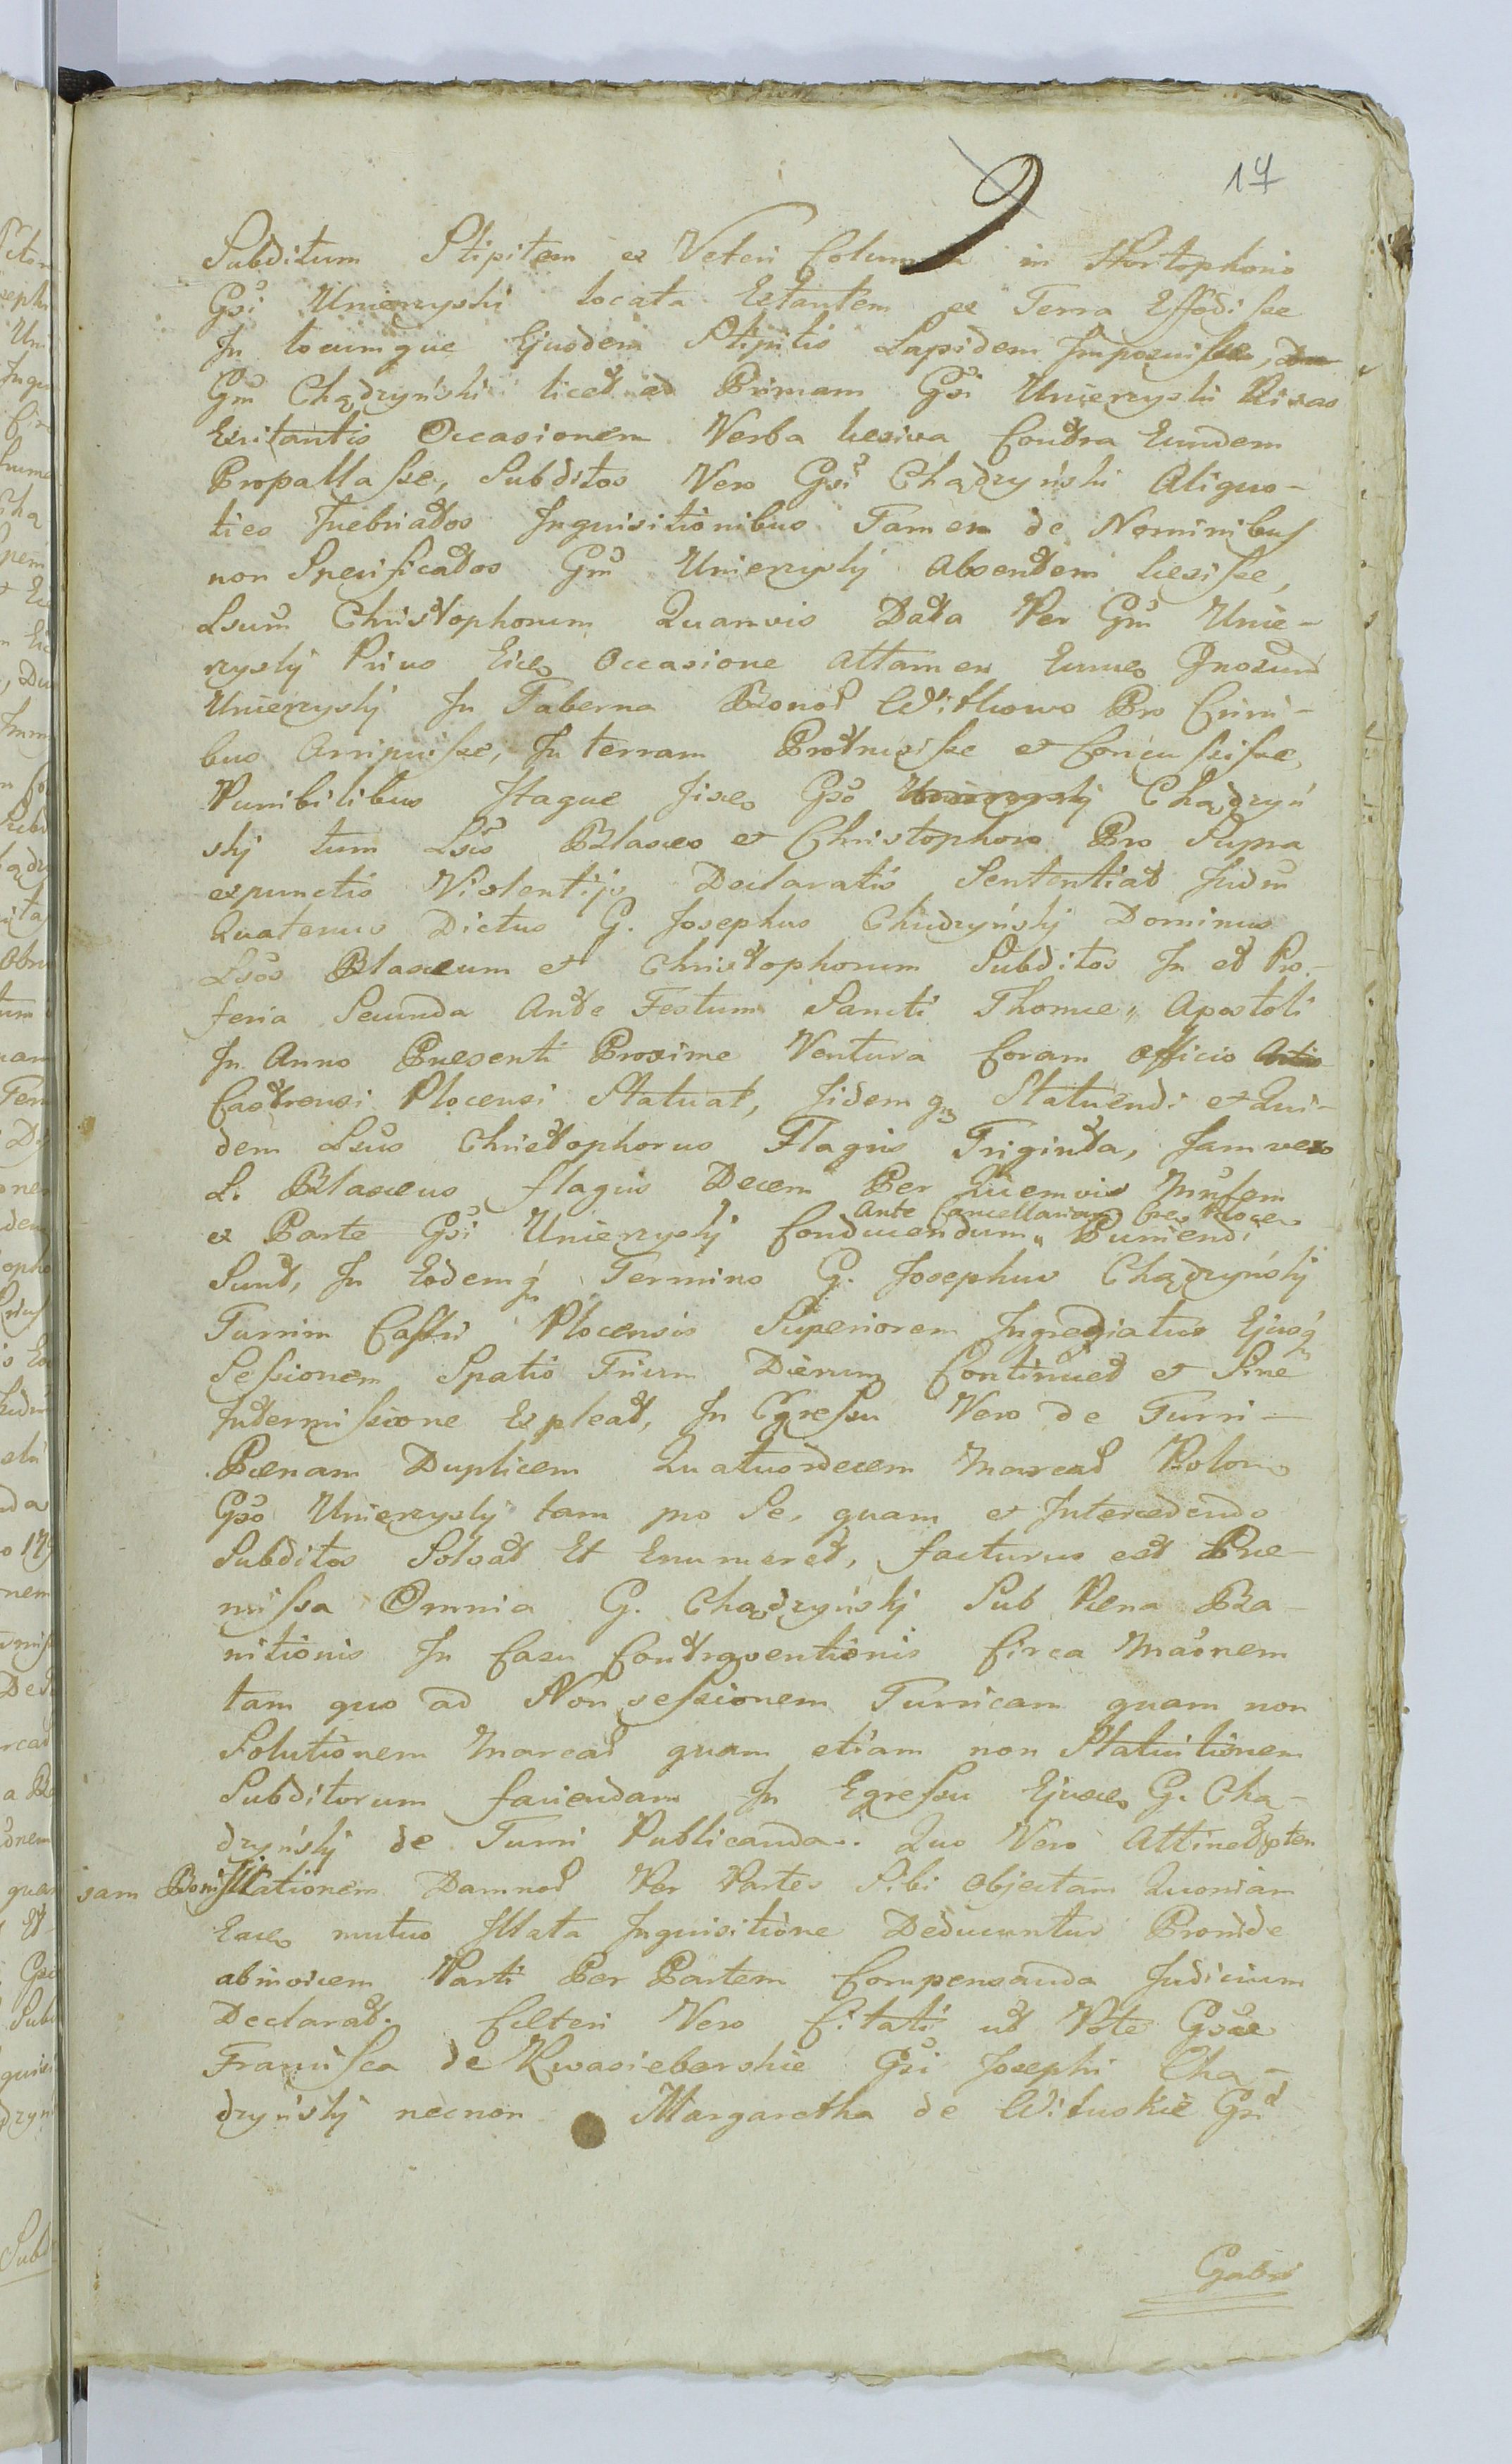 9
17
Subditum Stipitem ex Veteri Columna in Hortophono
Gsi Unierzyski locata Extantem ex Terra Effodisse
In locumque Ejusdem Stipitis Lapidem Imposuisse,
Gm Chądzyński licet ad Primam Gsi Unierzyski Rixas
Excitantis Occasionem Verba lesiva Contra Eundem
Propallasse, Subditos Vero Gsi Chądzyński Aliquo-
ties Inebriatos Inquisitionibus Tamen de Nominibus
non Specificatos Gm Unierzyskj Absentem lesisse,
Lsum Christophorum Quamvis Data Per Gm Unie-
rzyskj Prius Occasione Attamen
Unierzyskj In Taberna Bonor Witkowo Pro Crini-
bus Arripuisse, In terram Protrusisse et Concussisse,
Punibilibus Itaque Gso Chądzyń
skj tum Lso Blaseo et Christophoro Pro Supra
expunctis Violentijs Declaratis Sententiat Judm
Quatenus Dictus G. Josephus Chądzyńskj Dominus
Lsos Blaseum et Christophorum Subditos In et Pro
feria Secunda Ante Festum Sancti Thomae Apostoli
In Anno Presenti Proxime Ventura Coram Officio
Castrensi Plocensi Statuat, Iidemq Statuendi et Qui-
dem Lsus Christophorus Flagris Triginta, Jam vero
L. Blaseus flagris Decem Per Quemvis
Ante Cancellariam
ex Parte Gsi Unierzyskj Conducendum Puniendi
Sunt, In Eodemq Termino G. Josephus Chądzyńskj
Turrim Castri Plocensis Superiorem Ingrediatur Ejusq
Sessionem Spatio Trium Dierum Continuet et Sine
Intermissione Expleat, In Egressu Vero de Turri
Penam Duplicem Quatuordecem Marcar Polon
Gso Unierzyskj tam pro Se, quam et Intercedendo
Subditos Solvat Et Enumeret, facturus est Pre-
missa Omnia G. Chądzyńskj Sub Pena Ba-
nitionis In Casu Contraventionis Circa
tam quo ad Non sessionem Turricam quam non
Solutionem Marcar quam etiam non Statuitionem
Subditorum faciendam In Egressu G. Chą-
dzyńskj de Turri Publicanda. Quo Vero Attinet
sam Damnor Per Partes Sibi Objectam Quoniam
mutuo Illata Inquisitione Deducuntur Proinde
abinvicem Parti Per Partem Compensanda Judicium
Declarat. Ceteri Vero Citati ut Pote Gsae
Francisca de Kwasieborskie Gsi Josephi Chą-
dzyńskj necnon Margaretha de Wituskie Gsi